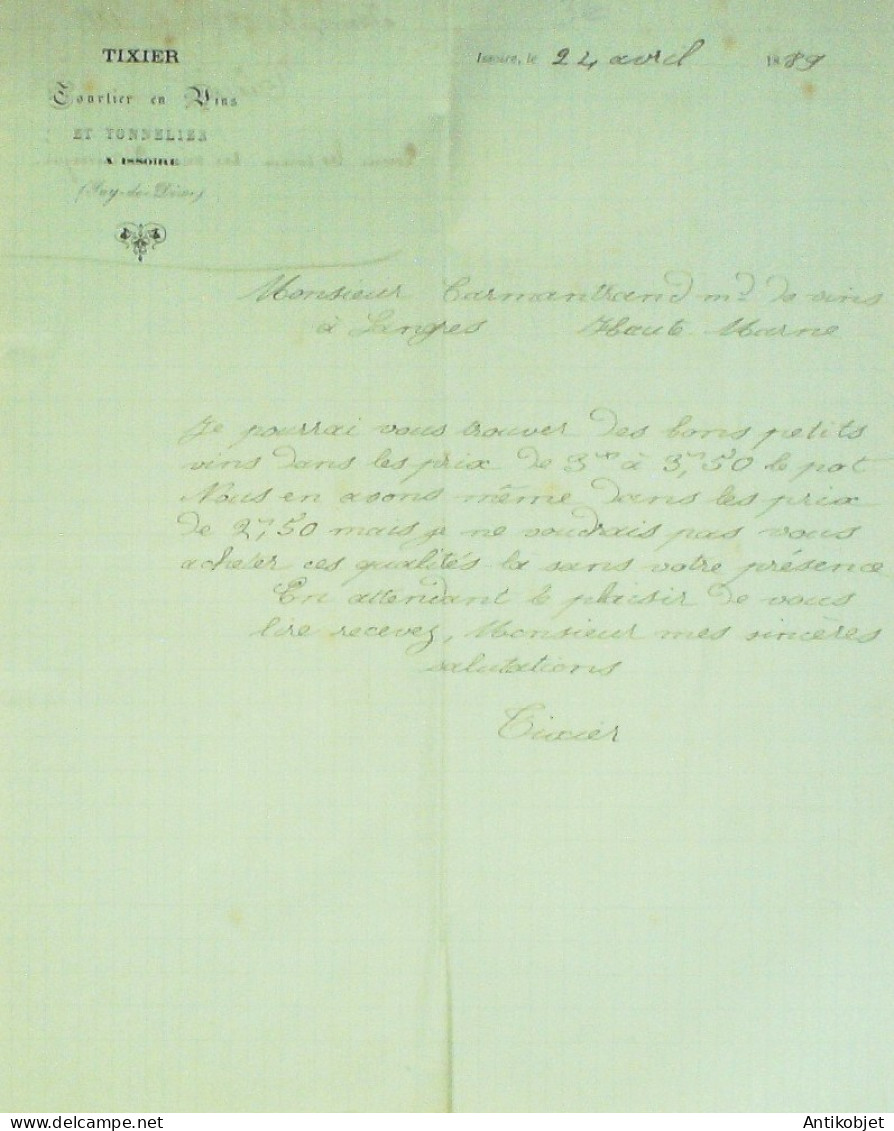 TIXIER
Courtier en Vins
ET TONNELIER
A ISSOIRE
(Puy-de-Dôme)
Issoire, le 24 avril 1889
Monsieur Carmantrand md de vins
à Langres Haute Marne
Je pourrai vous trouver des bons petits
vins dans les prix de 3 à 3,50 le pot
Nous en avons même dans les prix
de 2,50 mais je ne voudrais pas vous
acheter ces qualités la sans votre présence
En attendant le plaisir de vous
lire recevez, Monsieur mes sincères
salutations
Tixier
Antikobjet